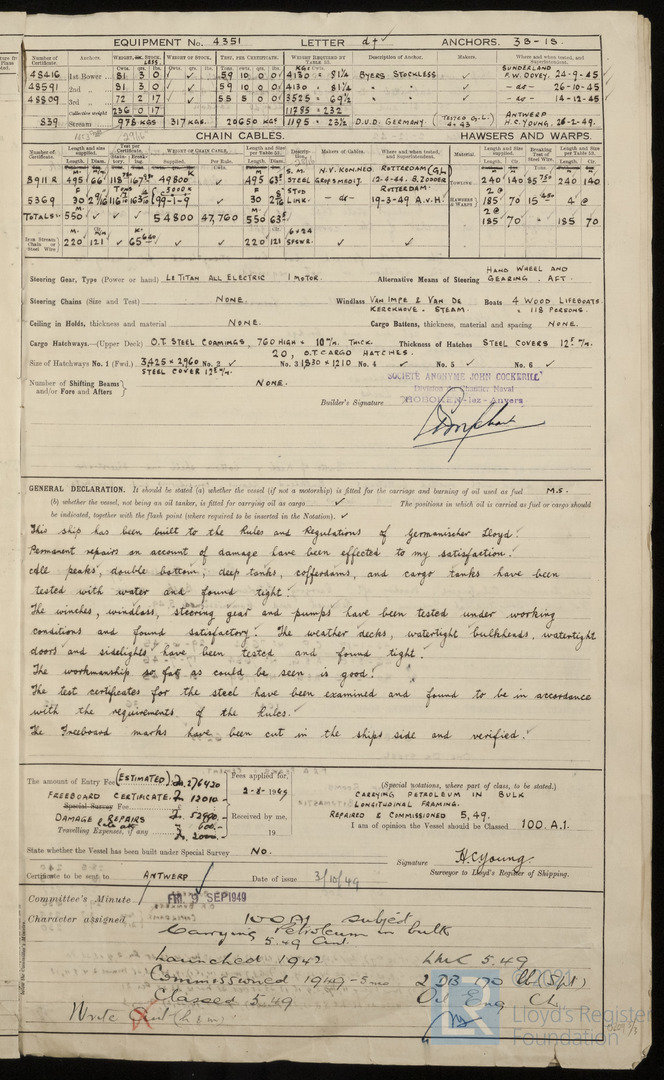 EQUIPMENT No. 4351 LETTER d† ANCHORS. 3B-1S.
Number of Certificate. Anchors. WEIGHT, EX. STOCK. LESS. WEIGHT OF STOCK. TEST, PER CERTIFICATE. WEIGHT REQUIRED BY TABLE 53. Description. Makers. Where and when tested, and Superintendent.
48416 1st Bower 81 3 0 ✓ 59 10 0 0 4130 = 81¼ BYERS STOCKLESS ✓ SUNDERLAND F.W. DOVEY. 24-9-45
48591 2nd " 81 3 0 ✓ 59 10 0 0 4130 = 81¼ " " ✓ -do- 26-10-45
48809 3rd " 72 2 17 ✓ 55 5 0 0 3525 = 69½ " " ✓ -do- 14-12-45
Collective weight 236 0 17 11785 = 232
839 Stream 978 KGS 317 KGS. 20650 KGS. 1195 = 23½ D.U.D. GERMANY. (TESTED G.L.) 4-43 ANTWERP H.C. YOUNG. 26-2-49.
CHAIN CABLES. HAWSERS AND WARPS.
Number of Certificate. Length and size supplied. Test per Certificate. WEIGHT OF CHAIN CABLE. Length and size per Table 53. Description. Makers of Cables. Where and when tested, and Superintendent. Material. Length and size supplied. Breaking Test of Steel Wire. Length and size per Table 53.
8911 R 495 66 49800 ✓ 495 63 S.M. STEEL N.V. KON. NED. GROFSMEDIJ. ROTTERDAM (G.L) 12-4-44. B. ZODDER TOWLINE 240 140 240 140
5369 30 99-1-9 30 STUD LINK. -do- ROTTERDAM. 19-3-49 A.V.H. HAWSERS & WARPS 2 @ 185 70 4 @
TOTALS: 550 ✓ 54800 47,760 550 63 2 @ 185 70 185 70
Iron Stream Chain or Steel Wire 220 121 ✓ 220 121 6 x 24 S.F.S.W.R. ✓ ✓
Steering Gear, Type (Power or hand) LE TITAN ALL ELECTRIC 1 MOTOR. Alternative Means of Steering HAND WHEEL AND GEARING. AFT.
Steering Chains (Size and Test) NONE. Windlass VAN IMPE & VAN DE KERCKHOVE. STEAM. Boats 4 WOOD LIFEBOATS = 118 PERSONS.
Ceiling in Holds, thickness and material NONE. Cargo Battens, thickness, material and spacing NONE.
Cargo Hatchways.—(Upper Deck) O.T. STEEL COAMINGS, 760 HIGH × 10 m/m. THICK. Thickness of Hatches STEEL COVERS 12.5 m/m.
20, O.T. CARGO HATCHES.
Size of Hatchways No. 1 (Fwd.) 3425 × 2960 No. 2 ✓ No. 3 1830 × 1210 No. 4 ✓ No. 5 ✓ No. 6 ✓
STEEL COVER 12.5 m/m.
Number of Shifting Beams and/or Fore and Afters NONE.
SOCIÉTÉ ANONYME JOHN COCKERILL
Division du Chantier Naval
HOBOKEN-lez-Anvers
Builder's Signature
GENERAL DECLARATION. It should be stated (a) whether the vessel (if not a motorship) is fitted for the carriage and burning of oil used as fuel M.S.
(b) whether the vessel, not being an oil tanker, is fitted for carrying oil as cargo ✓ The positions in which oil is carried as fuel or cargo should
be indicated, together with the flash point (where required to be inserted in the Notation). ✓
This ship has been built to the Rules and Regulations of Germanischer Lloyd.
Permanent repairs on account of damage have been effected to my satisfaction.
All peaks, double bottom, deep tanks, cofferdams, and cargo tanks have been
tested with water and found tight.
The winches, windlass, steering gear and pumps have been tested under working
conditions and found satisfactory. The weather decks, watertight bulkheads, watertight
doors and sidelights have been tested and found tight.
The workmanship so far as could be seen is good.
The test certificates for the steel have been examined and found to be in accordance
with the requirements of the Rules.
The Freeboard marks have been cut in the ships side and verified.
The amount of Entry Fee (ESTIMATED) 276420
FREEBOARD CERTIFICATE. 12010.-
Special Survey Fee
DAMAGE REPAIRS 52900.-
late att. 600.-
Travelling Expenses, if any 2000.-
Fees applied for, 2-8-1949
Received by me, 19
(Special notations, where part of class, to be stated.)
CARRYING PETROLEUM IN BULK
LONGITUDINAL FRAMING.
REPAIRED & COMMISSIONED 5,49.
I am of opinion the Vessel should be Classed 100.A.1.
State whether the Vessel has been built under Special Survey No.
Signature H.C. Young.
Surveyor to Lloyd's Register of Shipping.
Certificate to be sent to ANTWERP Date of issue 3/10/49
Committee's Minute FRI. 9 SEP 1949
Character assigned 100A1 subject
Carrying Petroleum in bulk
5.49 Ant.
Launched 1943 LMC 5.49
Commissioned 1949-5mo 2 DB 170 lb (Spt)
Classed 5.49 Oil Eng CL
Write Ant (h & m)
© 2021
Lloyd's Register
Foundation